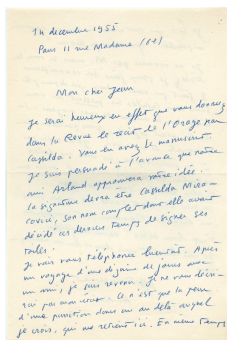 14 décembre 1955
Paris 11 rue Madame (6e)
Mon cher Jean
Je serai heureux en effet que vous donniez
dans la Revue le récit de l'Orage par
Casilda. Vous en avez le manuscrit
Je suis persuadé à l'avance que notre
ami Arland approuvera votre idée.
La signature devra être Casilda Miracovici
son nom complet dont elle avait
décidé ces derniers temps de signer ses
toiles.
Je vais vous téléphoner bientôt. Après
un voyage d'une dizaine de jours avec
un ami, je suis revenu. Je ne vous
pas mon
d'une
je crois, qui me retient ici. En même temps